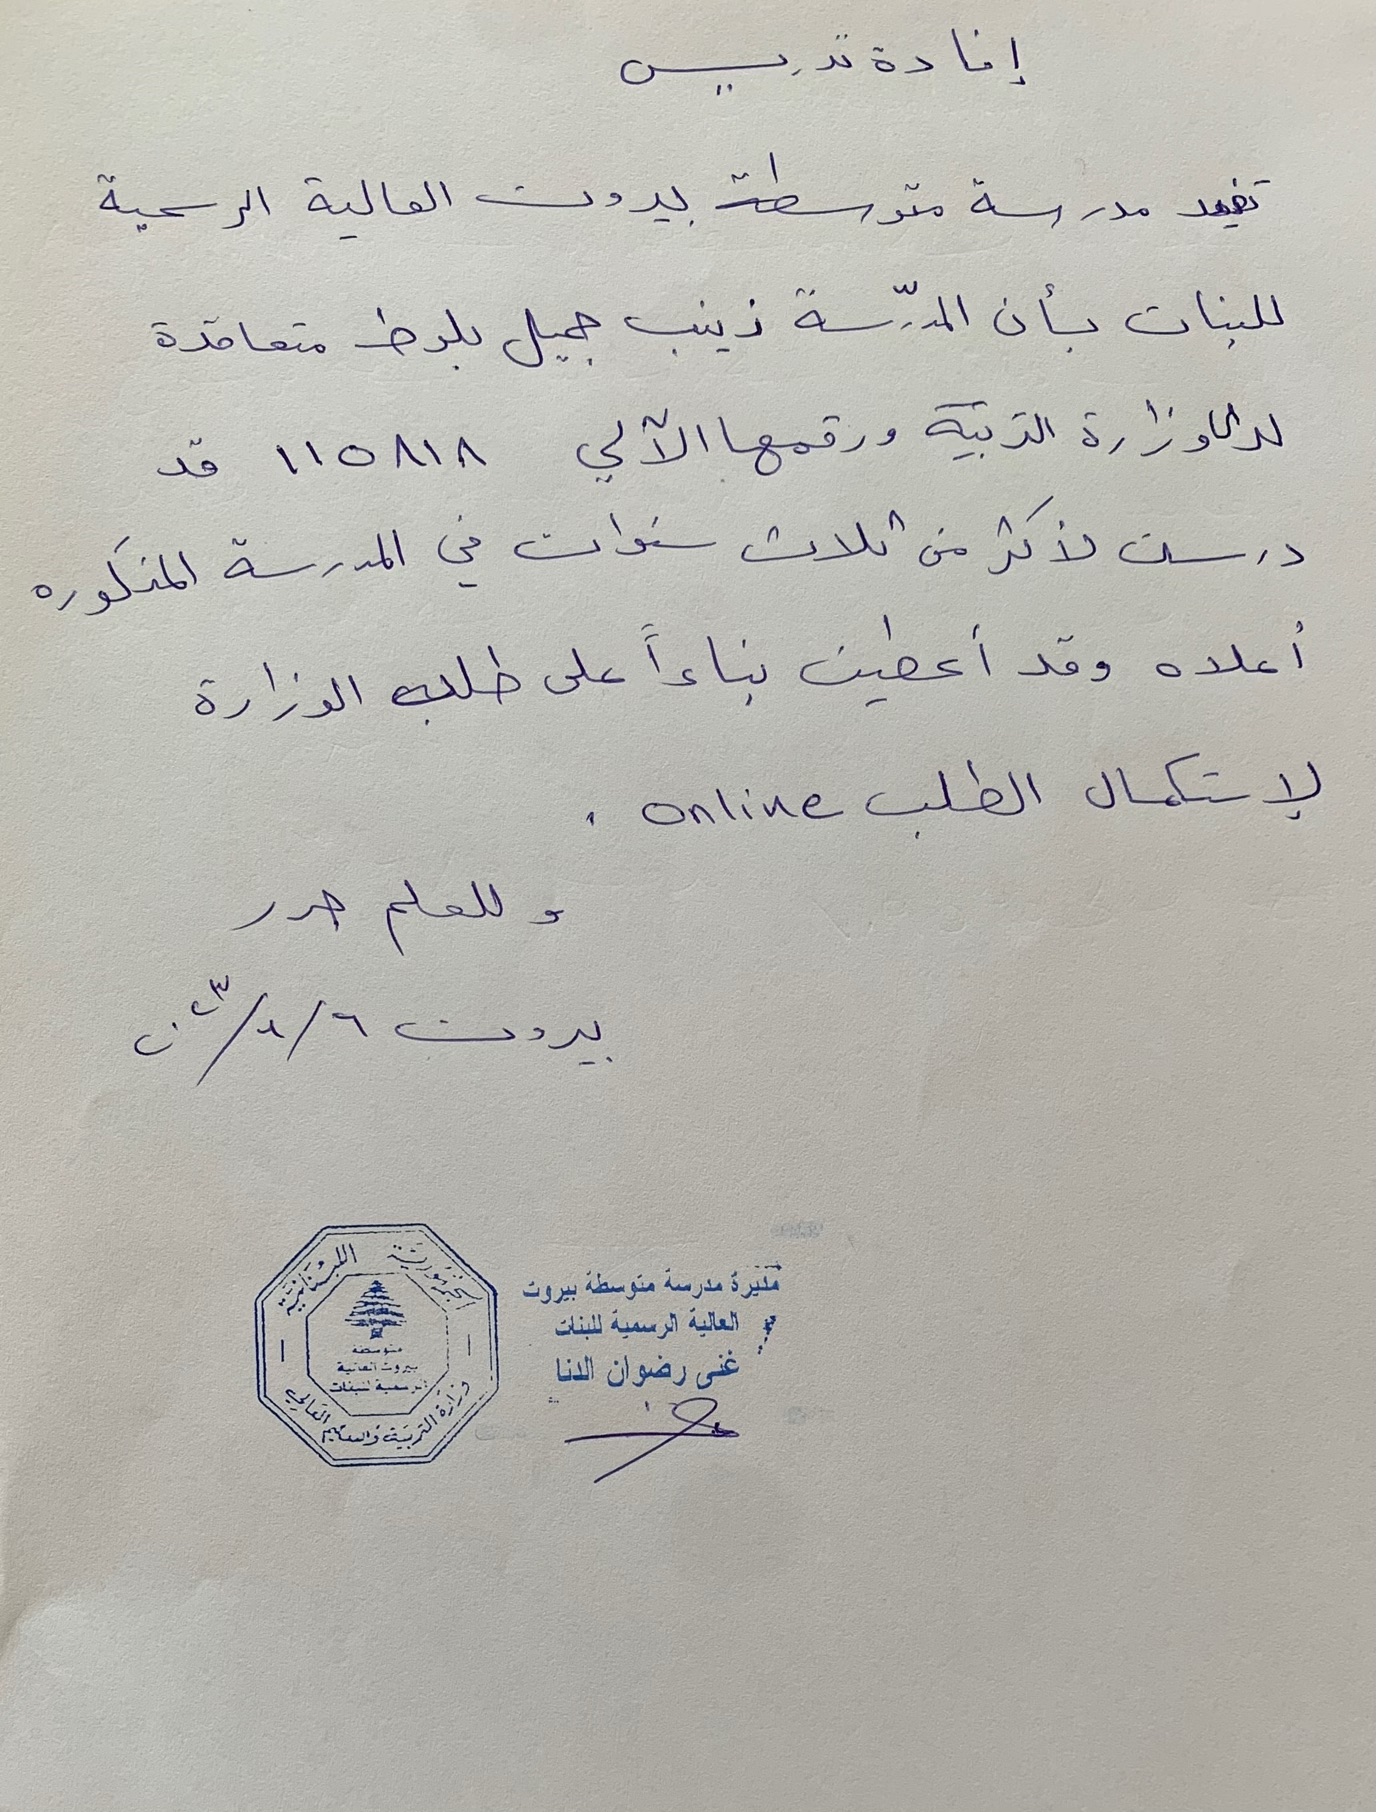 إفادة تدريس
تفيد مدرسة متوسطة بيروت العالية الرسمية
للبنات بأن المدرّسة زينب جميل بلوط متعاقدة
وزارة التربية ورقمها الآلي ١١٥٨١٨ قد
درست لأكثر من ثلاث سنوات في المدرسة المذكوره
أعلاه وقد أعطيت بناءاً على طلب الوزارة
لإستكمال الطلب online .
وللعلم حرر
بيروت
مديرة مدرسة متوسطة بيروت
العالية الرسمية للبنات
غنى رضوان الدنا
الجمهورية اللبنانية
متوسطة
بيروت العالية
الرسمية للبنات
وزارة التربية والتعليم العالي